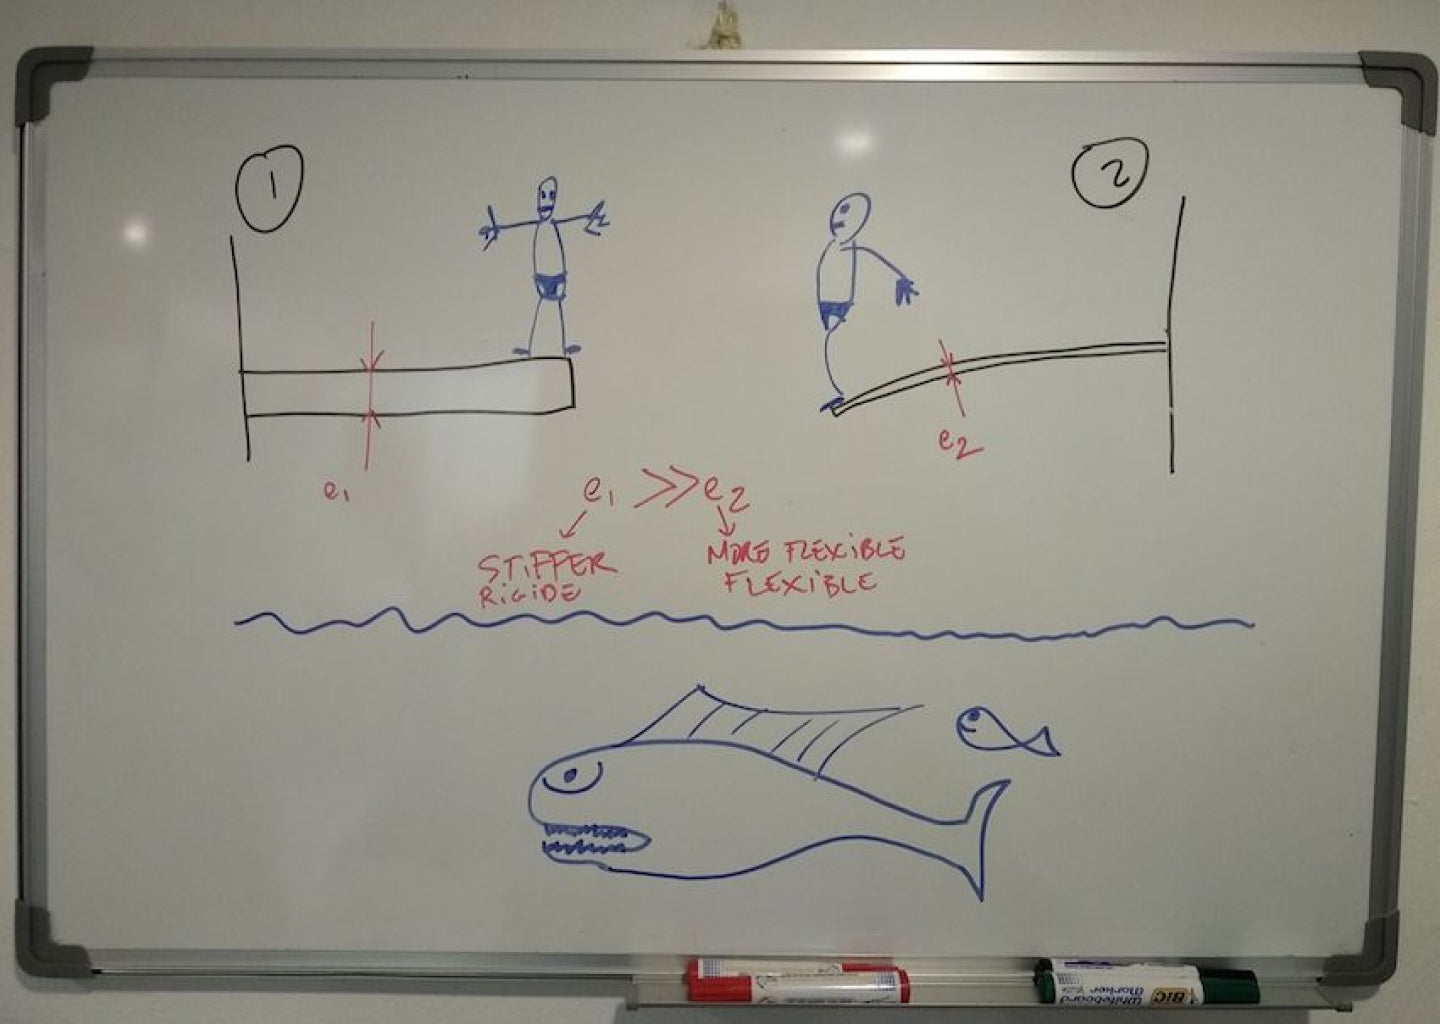 1
2
e1
e2
e1 >> e2
STIFFER
RIGIDE
MORE FLEXIBLE
FLEXIBLE
BIC
Whiteboard
Marker